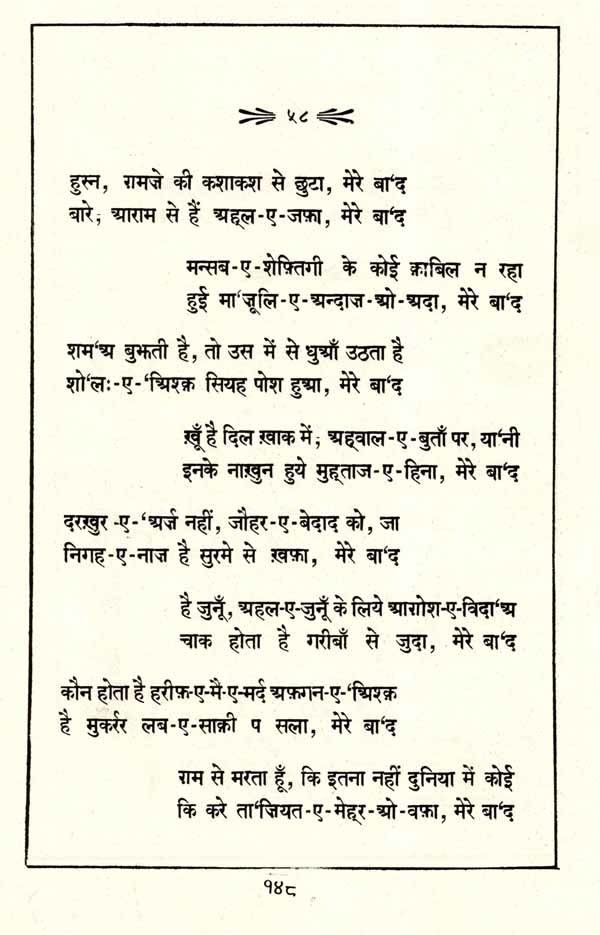 ५८
हुस्न, ग़मज़े की कशाकश से छुटा, मेरे बा'द
बारे, आराम से हैं अह्ल-ए-जफ़ा, मेरे बा'द
मन्सब-ए-शेफ़्तिगी के कोई क़ाबिल न रहा
हुई मा'ज़ूलि-ए-अन्दाज़-ओ-अदा, मेरे बा'द
शम'अ बुझती है, तो उस में से धुआँ उठता है
शो'लः-ए-'अिश्क़ सियह पोश हुआ, मेरे बा'द
ख़ूँ है दिल ख़ाक में, अह्वाल-ए-बुताँ पर, या'नी
इनके नाख़ुन हुये मुह्ताज-ए-हिना, मेरे बा'द
दरख़ुर-ए-'अर्ज़ नहीं, जौहर-ए-बेदाद को, जा
निगह-ए-नाज़ है सुरमे से ख़फ़ा, मेरे बा'द
है जुनूँ, अहल-ए-जुनूँ के लिये आग़ोश-ए-विदा'अ
चाक होता है गरीबाँ से जुदा, मेरे बा'द
कौन होता है हरीफ़-ए-मै-ए-मर्द अफ़गन-ए-'अिश्क़
है मुकर्रर लब-ए-साक़ी प सला, मेरे बा'द
ग़म से मरता हूँ, कि इतना नहीं दुनिया में कोई
कि करे ता'ज़ियत-ए-मेह्र-ओ-वफ़ा, मेरे बा'द
१४८